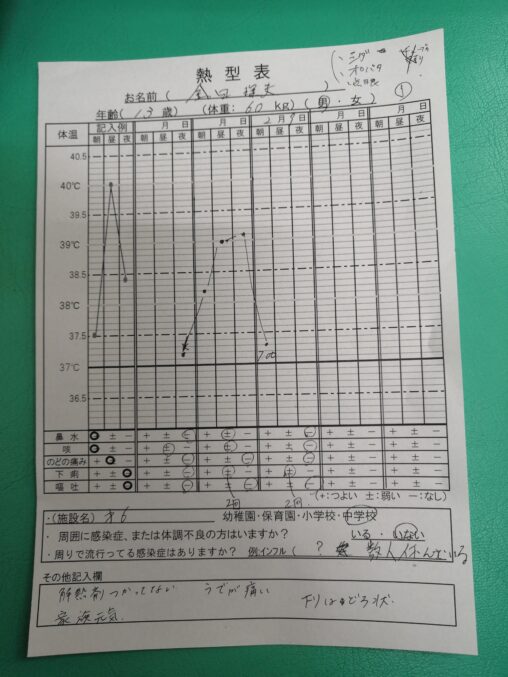 熱型表
お名前 ( 金田 )
年齢( 13 歳) (体重: 60 kg) (男・女) ①
体温 記入例 月 日 月 日 2月9日 月 日 月 日
朝 昼 夜 朝 昼 夜 朝 昼 夜 朝 昼 夜 朝 昼 夜 朝 昼 夜
40.5
40℃
39.5
39℃
38.5
38℃
37.5
37℃
36.5
鼻水 ○ ± − + ± − + ± − + ± − + ± − + ± −
咳 ○ ± − + ± − + ± − + ± − + ± − + ± −
のどの痛み + ○ − + ± − + ± − + ± − + ± − + ± −
下痢 + ± ○ + ± − + ± − + ± − + ± − + ± −
嘔吐 + ± ○ + ± − + ± − + ± − + ± − + ± −
2回 2回
(+:つよい ±:弱い −:なし)
・(施設名) 才6 幼稚園・保育園・小学校・中学校
・周囲に感染症、または体調不良の方はいますか? いる・いない
・周りで流行ってる感染症はありますか? 例:インフル ( ? 数人休んでいる
その他記入欄
解熱剤つかってない うでが痛い 下りはどろ状.
家族元気.